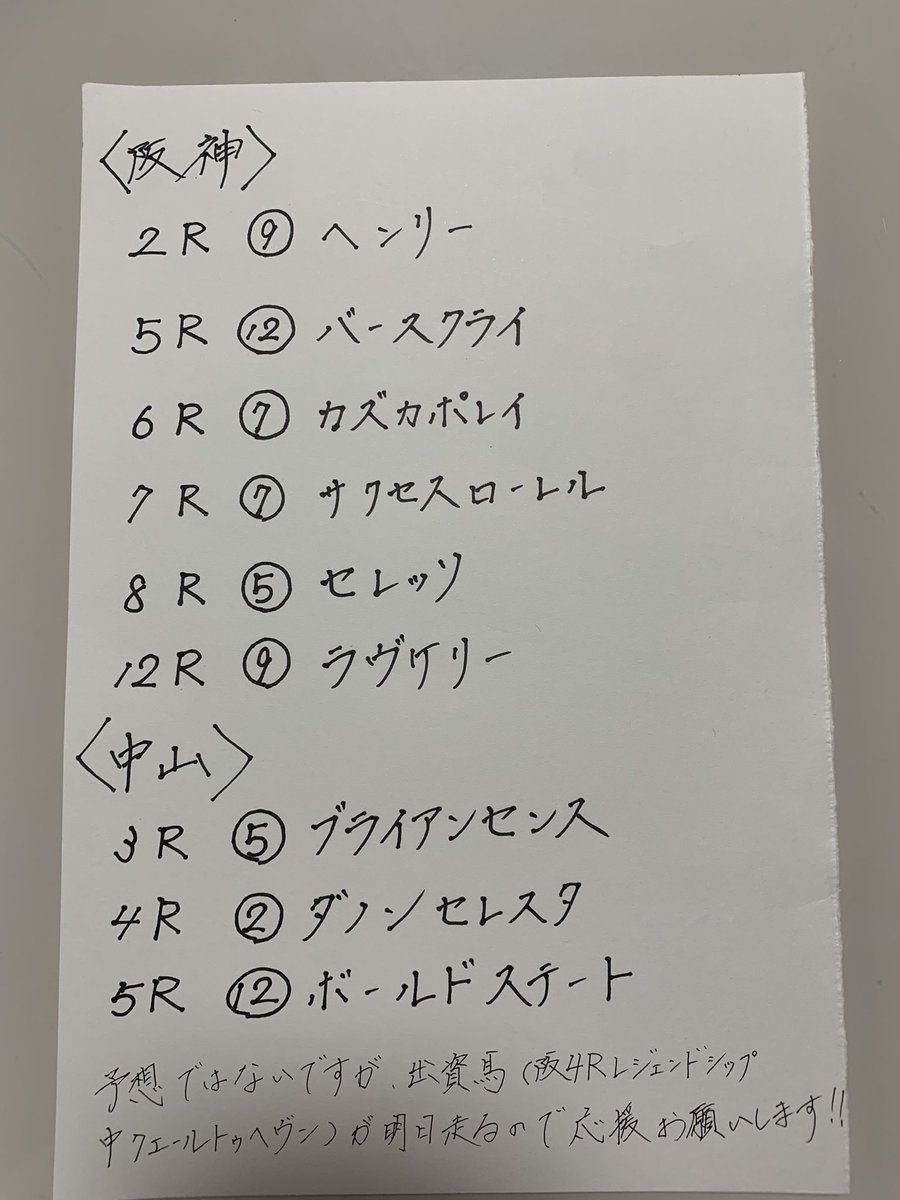 〈阪神〉
2R ⑨ ヘンリー
5R ⑫ バースクライ
6R ⑦ カズカポレイ
7R ⑦ サクセスローレル
8R ⑤ セレッソ
12R ⑨ ラヴケリー
〈中山〉
3R ⑤ ブライアンセンス
4R ② ダノンセレスタ
5R ⑫ ボールドステート
予想ではないですが、出資馬(阪4Rレジェンドシップ
中7エールトゥヘヴン)が明日走るので応援お願いします!!